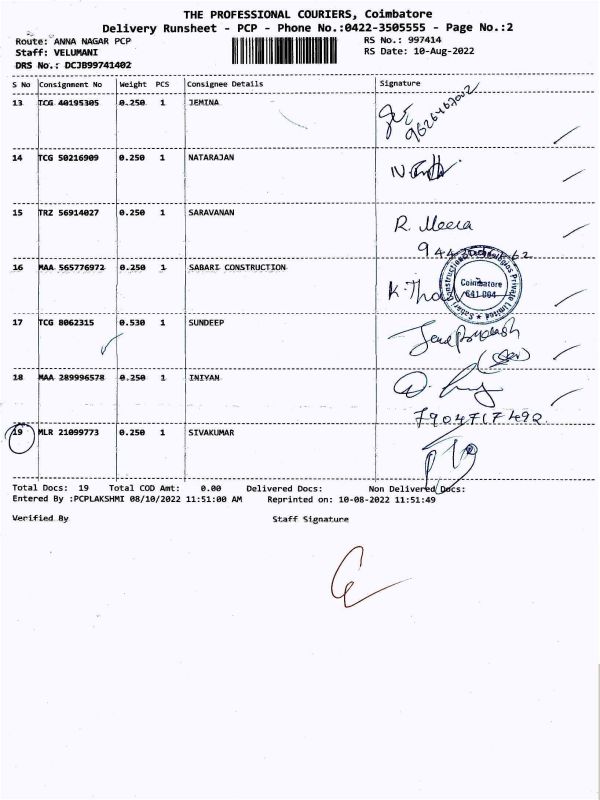 THE PROFESSIONAL COURIERS, Coimbatore
Delivery Runsheet - PCP - Phone No.:0422-3505555 - Page No.:2
Route: ANNA NAGAR PCP RS No.: 997414
Staff: VELUMANI RS Date: 10-Aug-2022
DRS No.: DCJB99741402
S No Consignment No Weight PCS Consignee Details Signature
13 TCG 40195305 0.250 1 JEMINA
14 TCG 50216909 0.250 1 NATARAJAN
15 TRZ 56914027 0.250 1 SARAVANAN R. Meera
16 MAA 565776972 0.250 1 SABARI CONSTRUCTION
Coimbatore
641 004
17 TCG 8062315 0.530 1 SUNDEEP
18 MAA 289996578 0.250 1 INIYAN
19 MLR 21099773 0.250 1 SIVAKUMAR
Total Docs: 19 Total COD Amt: 0.00 Delivered Docs: Non Delivered Docs:
Entered By :PCPLAKSHMI 08/10/2022 11:51:00 AM Reprinted on: 10-08-2022 11:51:49
Verified By Staff Signature